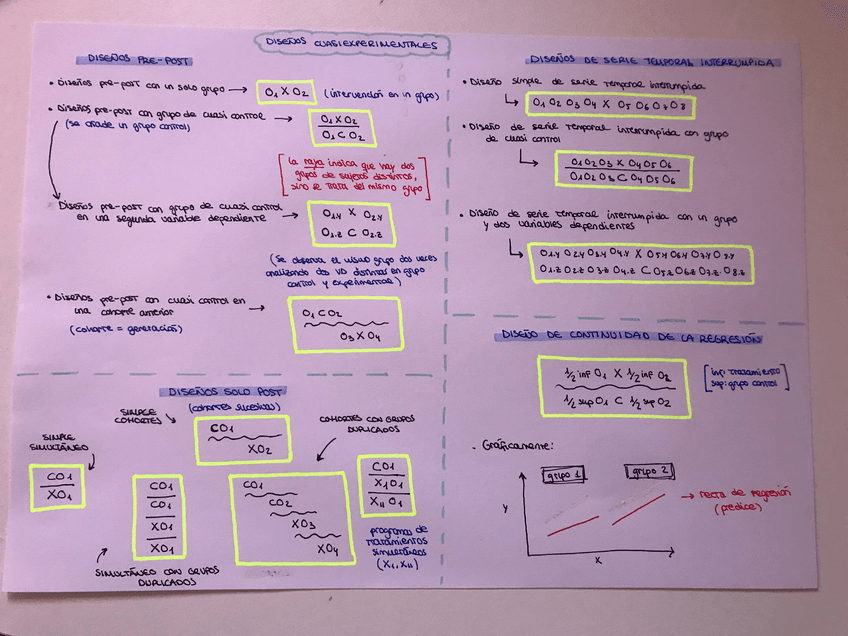 DISEÑOS CUASIEXPERIMENTALES
DISEÑOS PRE-POST
• Diseños pre-post con un solo grupo → O1 X O2 (intervención en un grupo)
• Diseños pre-post con grupo de cuasi control →
(se añade un grupo control)
O1 X O2
O1 C O2
La raya indica que hay dos
grupos de sujetos distintos,
sino se trata del mismo grupo
Diseños pre-post con grupo de cuasi control
en una segunda variable dependiente →
O1.Y X O2.Y
O1.Z C O2.Z
(se observa el mismo grupo dos veces
analizando dos VD distintas en grupo
control y experimental)
• Diseños pre-post con cuasi control en
una cohorte anterior →
(cohorte = generación)
O1 C O2
O3 X O4
DISEÑOS SOLO POST
(cohortes sucesivas)
SIMPLE
SIMULTÁNEO
CO1
XO1
SIMPLE
COHORTES
CO1
XO2
CO1
CO1
XO1
XO1
SIMULTÁNEO CON GRUPOS
DUPLICADOS
COHORTES CON GRUPOS
DUPLICADOS
CO1
CO2
XO3
XO4
CO1
X1O1
X11O1
programas de
tratamientos
simultáneos
(X1, X11)
DISEÑOS DE SERIE TEMPORAL INTERRUMPIDA
• Diseño simple de serie temporal interrumpida
O1 O2 O3 O4 X O5 O6 O7 O8
• Diseño de serie temporal interrumpida con grupo
de cuasi control
O1 O2 O3 X O4 O5 O6
O1 O2 O3 C O4 O5 O6
• Diseño de serie temporal interrumpida con un grupo
y dos variables dependientes
O1.Y O2.Y O3.Y O4.Y X O5.Y O6.Y O7.Y
O1.Z O2.Z O3.Z O4.Z C O5.Z O6.Z O7.Z O8.Z
DISEÑO DE CONTINUIDAD DE LA REGRESIÓN
1/2 inf O1 X 1/2 inf O2
1/2 sup O1 C 1/2 sup O2
inf: tratamiento
sup: grupo control
• Gráficamente:
grupo 1
grupo 2
Y
X
→ recta de regresión
(predice)